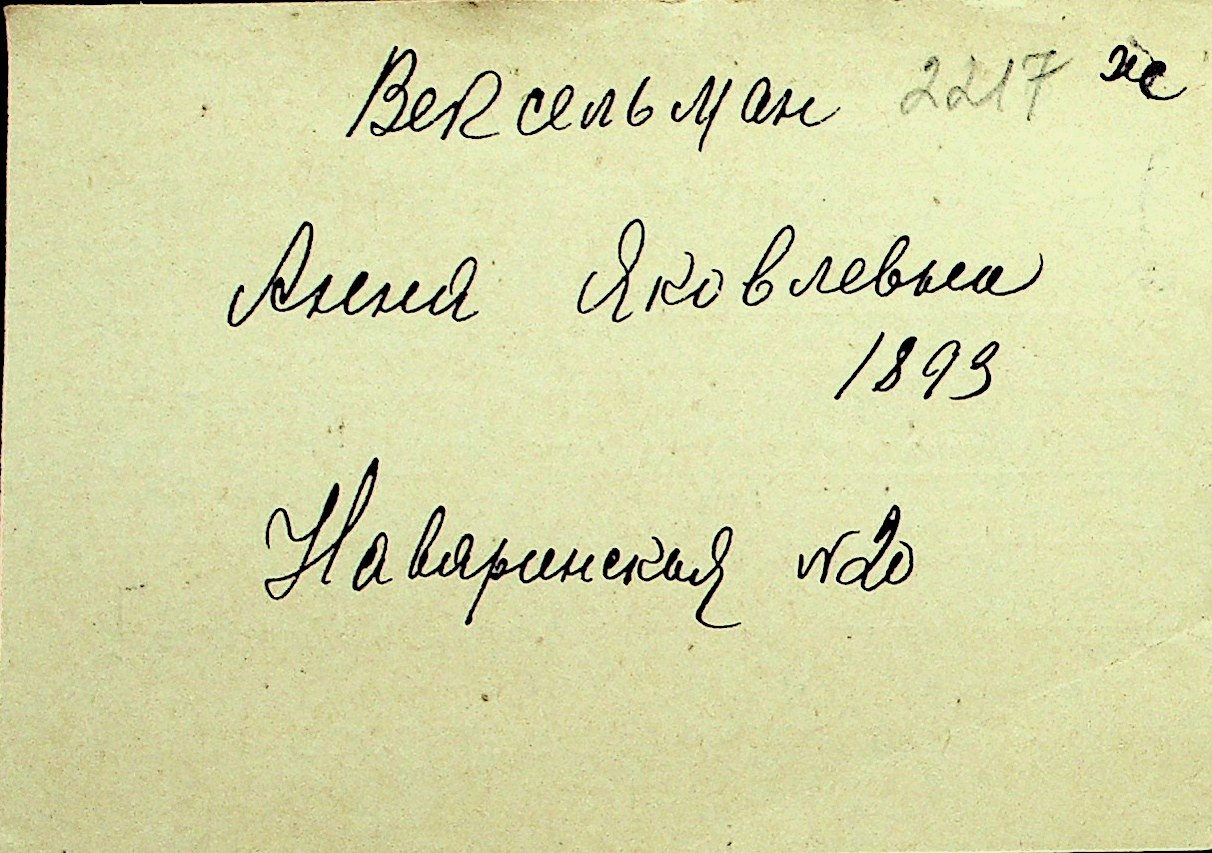 Вексельман 2217 ж
Анна Яковлевна
1893
Наваринская №20